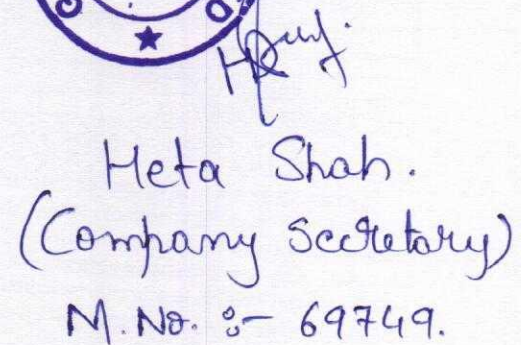 Heta Shah.
(Company Secretary)
M. No. :- 69749.